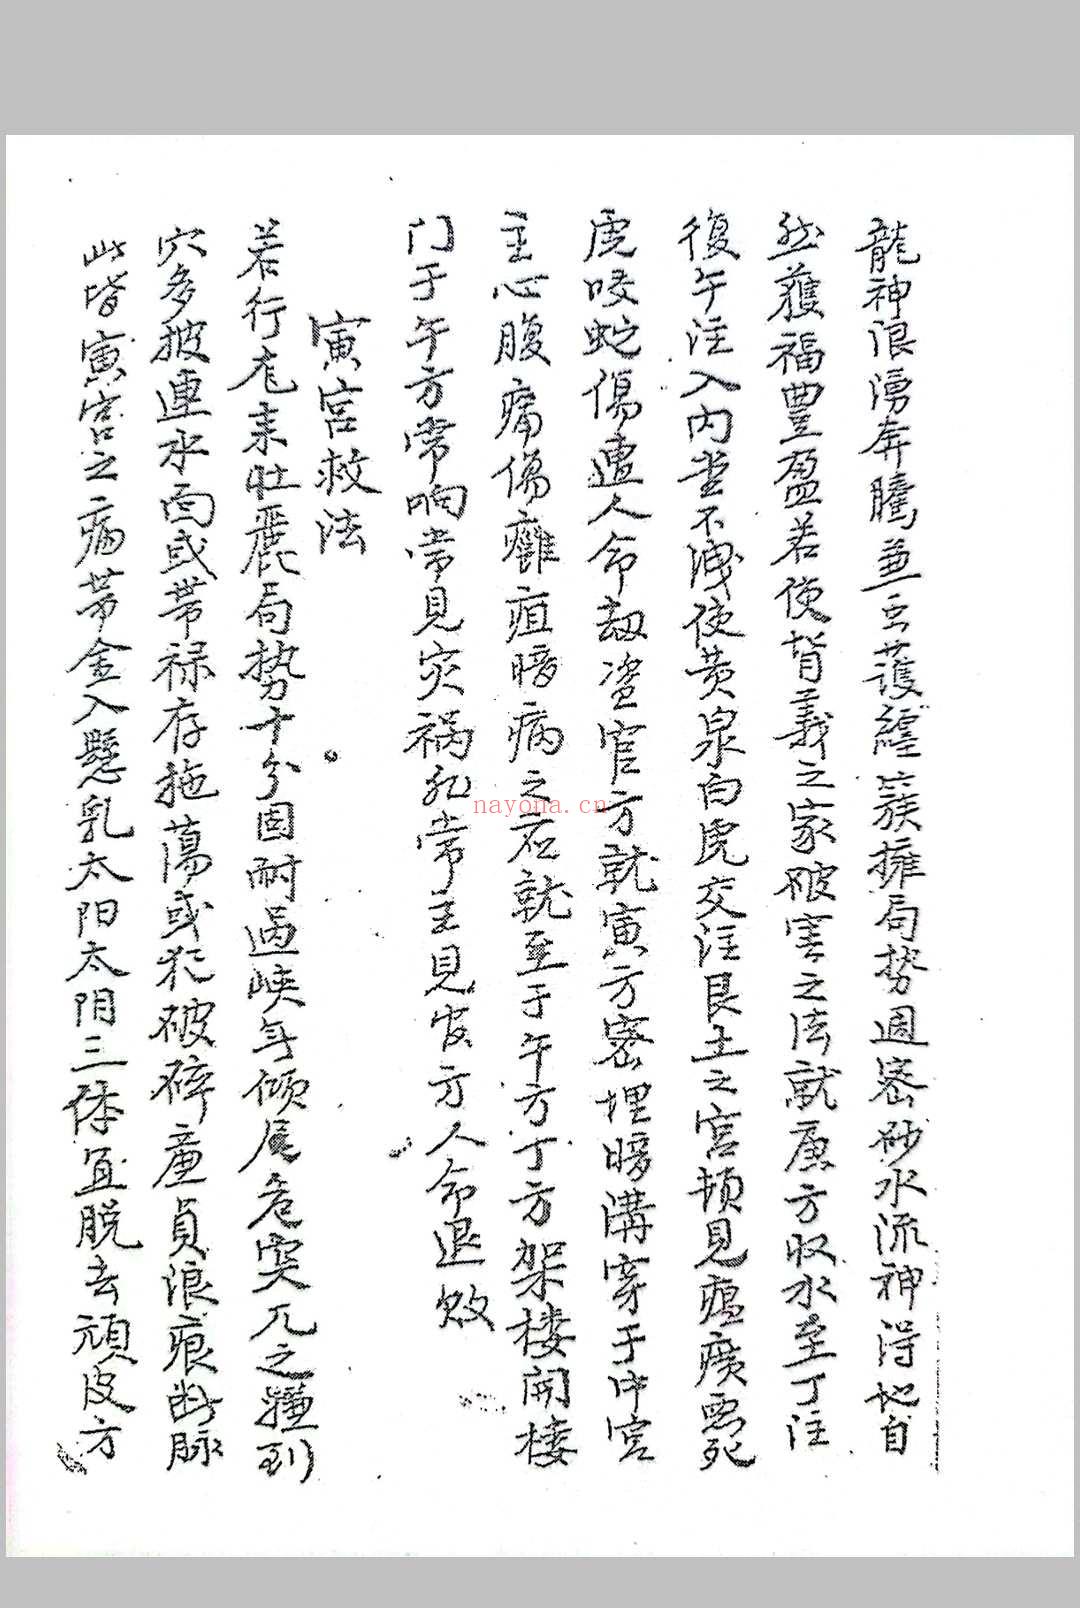 龍神浪湧奔騰兼云護纏簇擁局势週密砂水流神得地自
然獲福豐盈若使背義之家破害之法就廉方收水至丁注
復午注入内堂不洩使黄泉白虎交注艮土之宫頓見瘟癀惡死
虎咬蛇傷遭人命劫盗官方就寅方密埋暗溝穿于中宫
主心腹痛傷癱疽暗病之石就至于午方丁方架楼開楼
门于午方常响常見灾祸孔常主見官方人命退敗
寅宫救法
若行龙来壮麗局势十分固耐過峡身倾居危突兀之疆到
穴多披連水面或带禄存拖蕩或犯破碎廉貞浪痕断脉
此皆寅宫之病带金入懸乳太阳太阴三体宜脱去頑皮方
nayona.cn